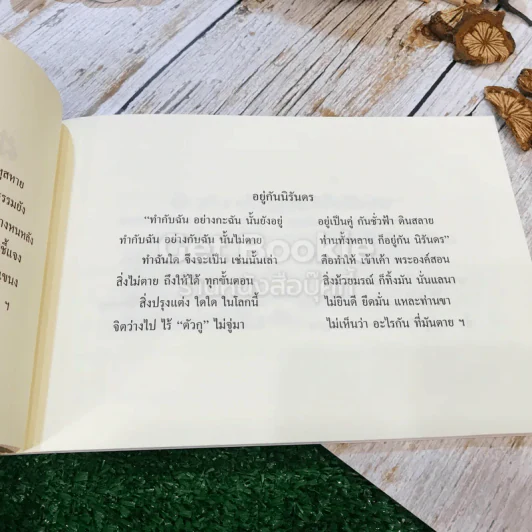 ๆสหาย
รรมยัง
างหนหลัง
ชี้แจง
แขนง
ฯ
อยู่กันนิรันดร
“ทำกับฉัน อย่างกะฉัน นั้นยังอยู่ อยู่เป็นคู่ กันชั่วฟ้า ดินสลาย
ทำกับฉัน อย่างกับฉัน นั้นไม่ตาย ท่านทั้งหลาย ก็อยู่กัน นิรันดร”
ทำฉันใด จึงจะเป็น เช่นนั้นเล่า คือทำให้ เข้าเค้า พระองค์สอน
สิ่งไม่ตาย ถึงให้ได้ ทุกขั้นตอน สิ่งม้วยมรณ์ ก็ทิ้งมัน นั่นแลนา
สิ่งปรุงแต่ง ใดใด ในโลกนี้ ไม่ยินดี ยึดมั่น แหละท่านขา
จิตว่างไป ไร้ “ตัวกู” ไม่จู่มา ไม่เห็นว่า อะไรกัน ที่มันตาย ฯ
Get Bookie
ร้านหนังสือบุ๊คกี้